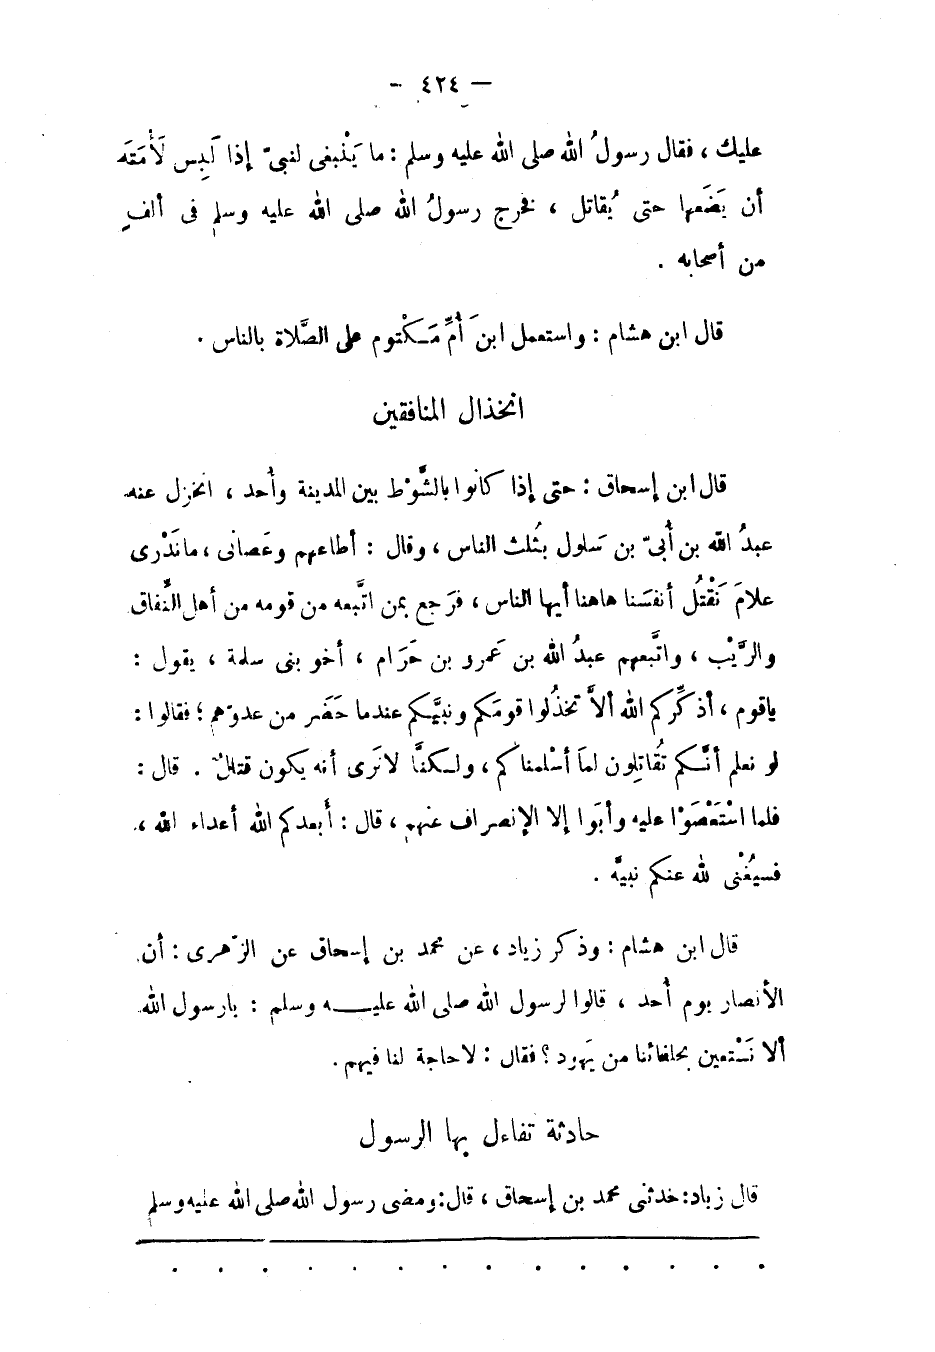 — ٤٢٤ —
عليك ، فقال رسولُ الله صلى الله عليه وسلم : ما يَنْبغى لنبىّ إذا لَبِس لَأْمَتَه
أن يَضَعها حتى يُقاتل ، فخرج رسولُ الله صلى الله عليه وسلم فى ألفٍ
من أصحابه .
قال ابن هشام : واستعمل ابنَ أُمِّ مَكْتوم على الصَّلاة بالناس .
انخذال المنافقين
قال ابن إسحاق : حتى إذا كانوا بالشَّوْط بين المدينة وأُحد ، انخزل عنه
عبدُ الله بن أُبىّ بن سَلول بثُلث الناس ، وقال : أطاعهم وعَصانى ، مانَدْرى
علامَ نَقْتُل أنفسَنا هاهنا أيها الناس ، فرَجع بمن اتَّبعه من قومه من أهل النِّفاق
والرَّيْب ، واتَّبعهم عبدُ الله بن عَمرو بن حَرَام ، أخو بنى سلمة ، يقول :
ياقوم ، أذكِّركم الله ألاَّ تخذُلوا قومَكم ونبيَّكم عندما حَضَر من عدوّهم ؛ فقالوا :
لو نعلم أنَّكم تُقاتِلون لمَا أسْلمناكم ، ولكنَّا لانَرى أنه يكون قتالٌ . قال :
فلما اسْتَعْصَوْا عليه وأبَوا إلا الإنصراف عنهم ، قال : أبعدكم الله أعداء الله ،
فسيُغْنى لله عنكم نبيَّه .
قال ابن هشام : وذكر زياد ، عن محمد بن إسحاق عن الزّهرى : أن
الأنصار يوم أُحد ، قالوا لرسول الله صلى الله عليـــه وسلم : يارسول الله
ألا نَسْتعين بحلفائنا من يَهود ؟ فقال : لاحاجة لنا فيهم .
حادثة تفاءل بها الرسول
قال زياد : حدثنى محمد بن إسحاق ، قال : ومضى رسول الله صلى الله عليه وسلم
. . . . . . . . . . . . . .